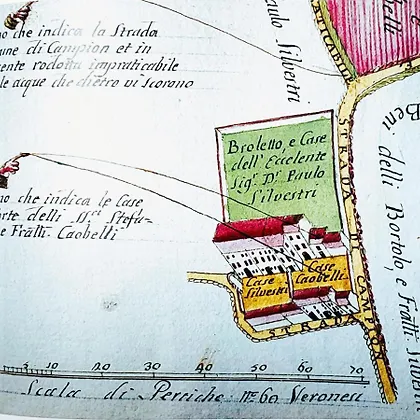 no che indica la Strada
une di Campion et in
ente rodotta impraticabile
le acque che dietro vi scorono
aulo Silvestri
belli
Broletto, e Case
dell' Eccelente
Sig.r D.r Paulo
Silvestri
no che indica le Case
orte delli SS.ri Stefa=
e Fratti. Caobelli
Case
Silvestri
Case
Caobelli
STRADA DI CAMPION
STRADA
Beni delli Bortolo, e Fratti
10 20 30 40 50 60 70
Scala di Perciche n.o 60 Veronesi